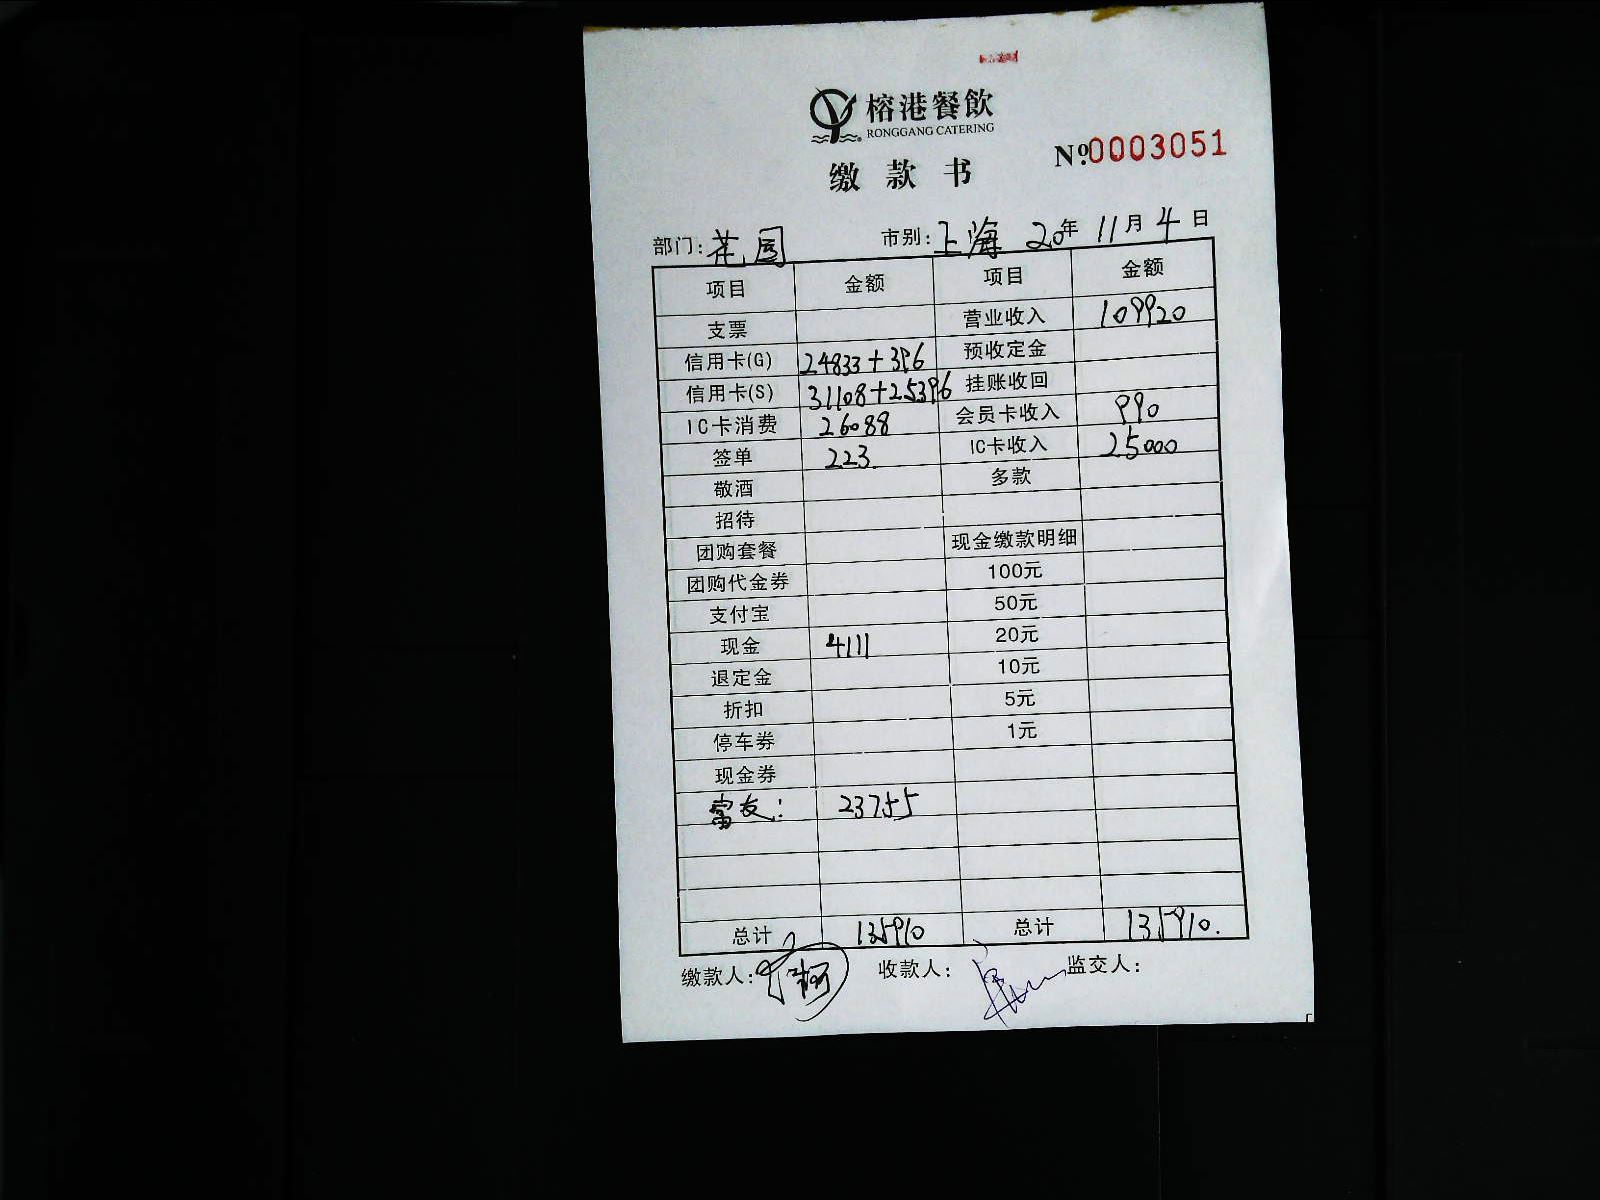 榕港餐飲
RONGGANG CATERING
缴款书
№0003051
部门：花园 市别：上海 20年11月4日
项目 金额 项目 金额
支票 营业收入 109920
信用卡(G) 24833+396 预收定金
信用卡(S) 31108+25396 挂账收回
IC卡消费 26088 会员卡收入 990
签单 223. IC卡收入 25000
敬酒 多款
招待
团购套餐 现金缴款明细
团购代金券 100元
支付宝 50元
现金 4111 20元
退定金 10元
折扣 5元
停车券 1元
现金券
富友： 23755
总计 135910 总计 135910.
缴款人： 收款人： 监交人：